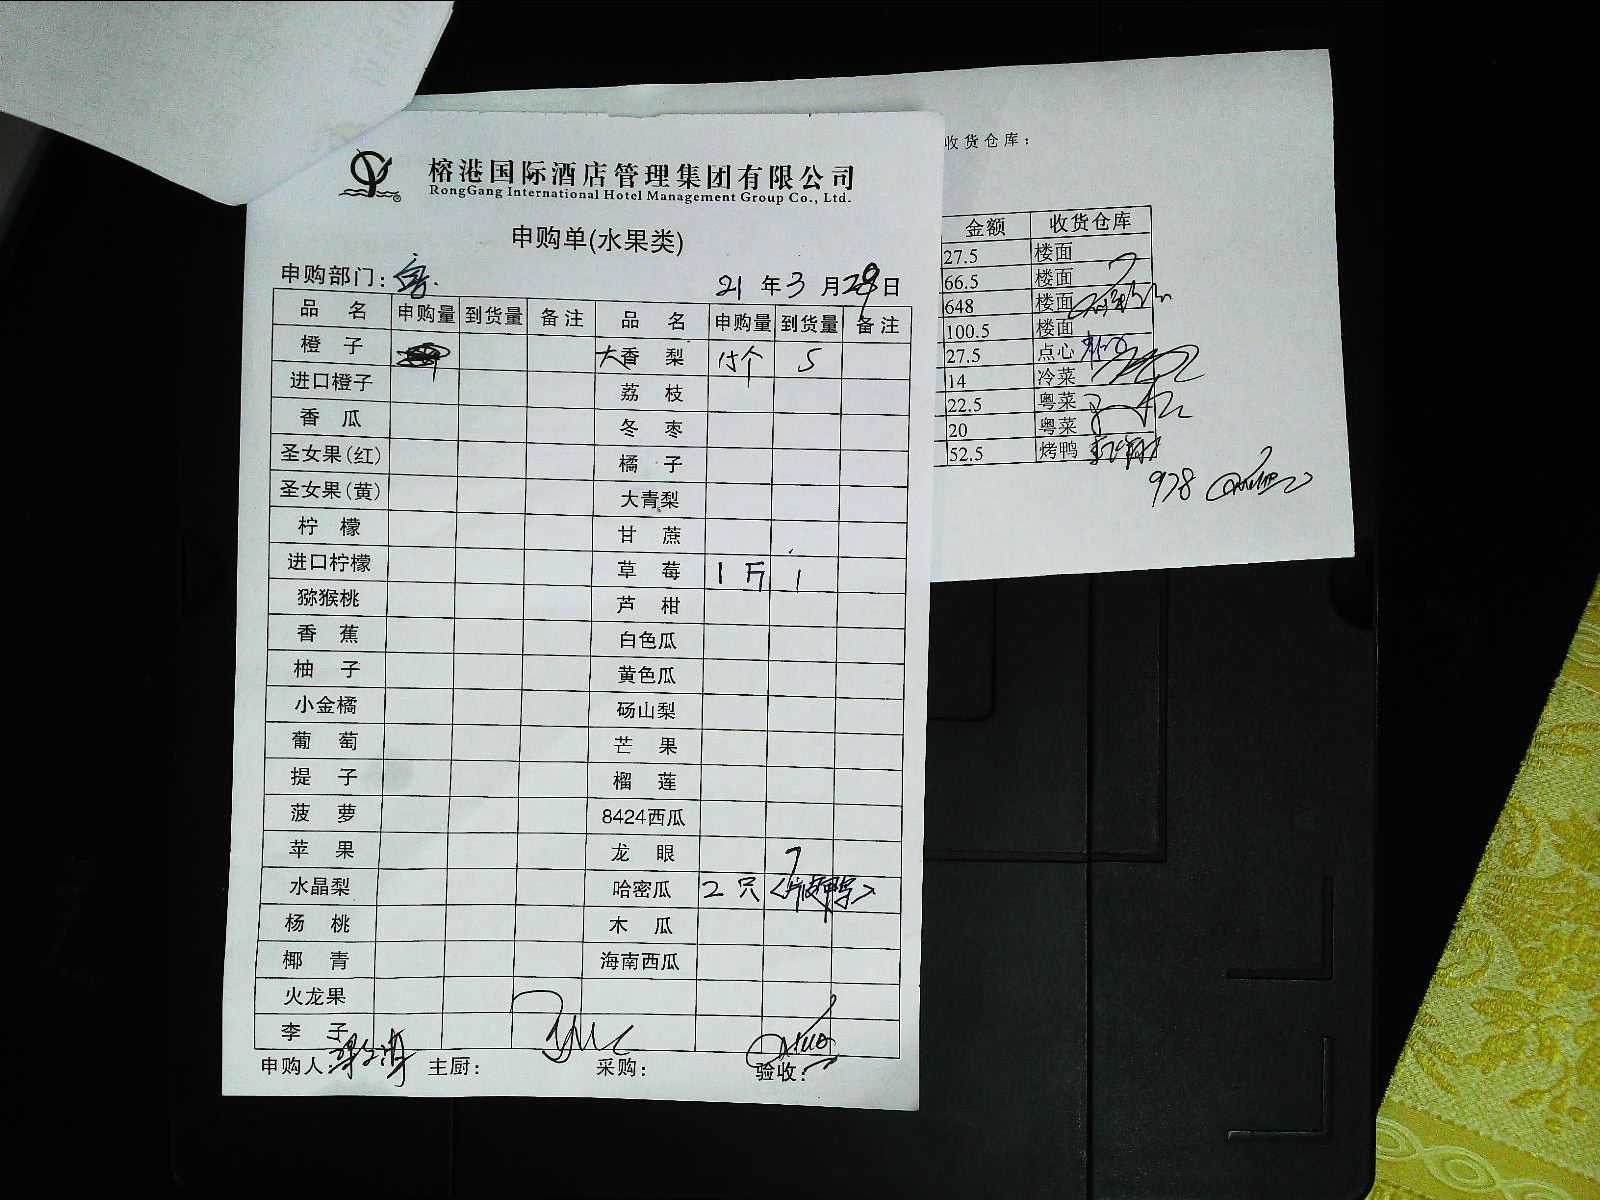 榕港国际酒店管理集团有限公司
RongGang International Hotel Management Group Co., Ltd.
申购单(水果类)
申购部门:
21 年 3 月 29 日
品名 申购量 到货量 备注 品名 申购量 到货量 备注
橙子 大香梨 15个 5
进口橙子 荔枝
香瓜 冬枣
圣女果(红) 橘子
圣女果(黄) 大青梨
柠檬 甘蔗
进口柠檬 草莓 1斤 1
猕猴桃 芦柑
香蕉 白色瓜
柚子 黄色瓜
小金橘 砀山梨
葡萄 芒果
提子 榴莲
菠萝 8424西瓜
苹果 龙眼
水晶梨 哈密瓜 2只 <片皮鸭>
杨桃 木瓜
椰青 海南西瓜
火龙果
李子
申购人: 主厨: 采购: 验收:
收货仓库:
金额 收货仓库
27.5 楼面
66.5 楼面
648 楼面
100.5 楼面
27.5 点心
14 冷菜
22.5 粤菜
20 粤菜
52.5 烤鸭
978